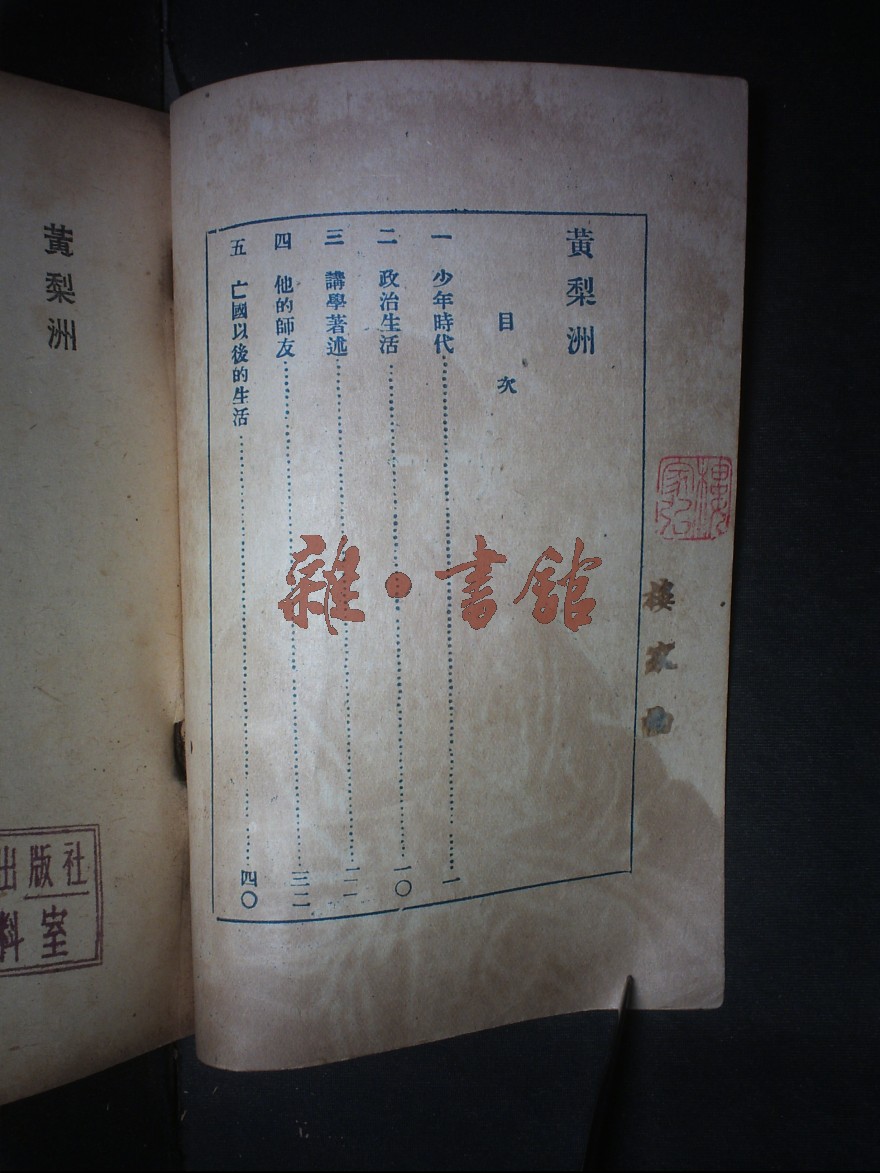 樓家
黃梨洲
目次
一 少年時代……一
二 政治生活……一〇
三 講學著述……
四 他的師友……三二
五 亡國以後的生活……四〇
雜·書館
黃梨洲
出版社
料室